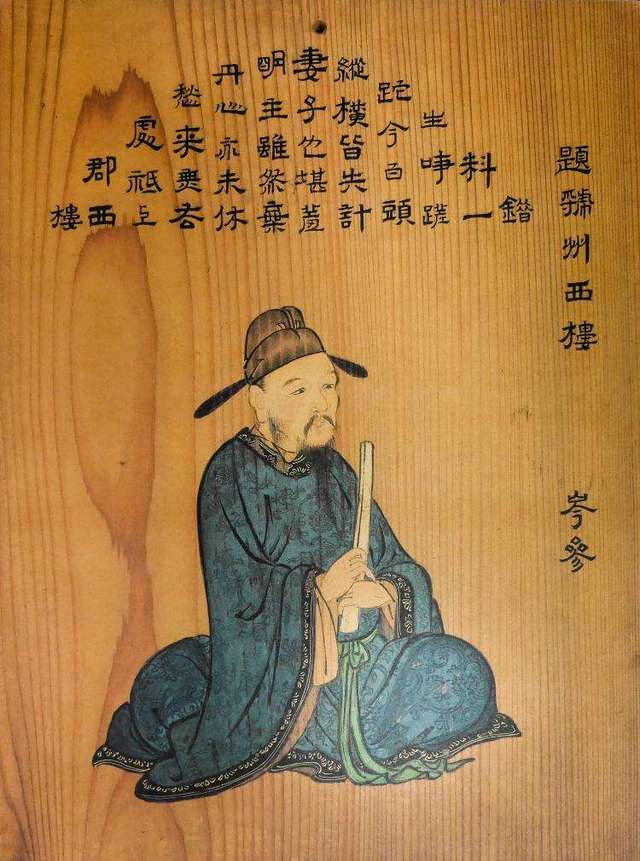 題虢州西樓
岑參
錯
料一
生事蹉
跎今白頭
縱橫皆失計
妻子也堪羞
明主雖然棄
丹心亦未休
愁来無去
處祗上
郡西
樓